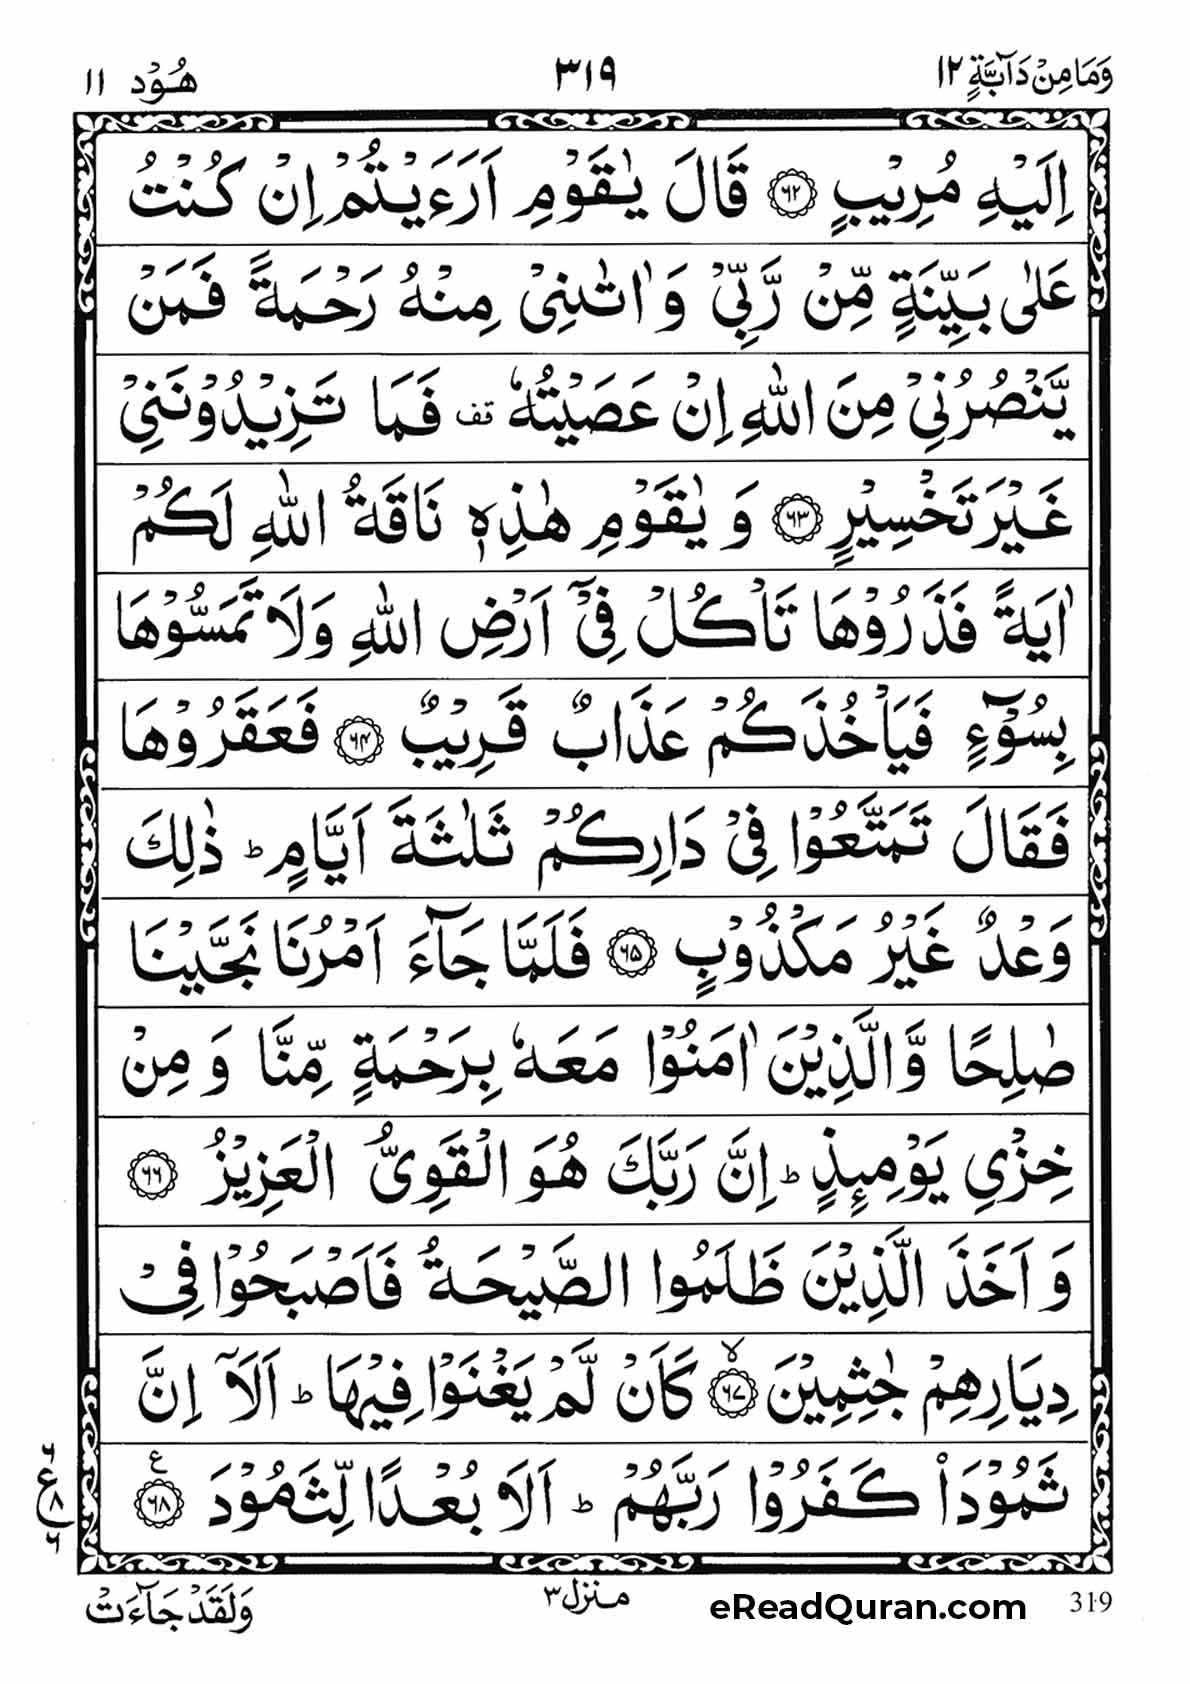 وَمَا مِنْ دَآبَّةٍ ١٢ ٣١٩ هُوْد ١١
اِلَيْهِ مُرِيْبٍ ﴿٦٢﴾ قَالَ يٰقَوْمِ اَرَءَيْتُمْ اِنْ كُنْتُ
عَلٰى بَيِّنَةٍ مِّنْ رَّبِّىْ وَ اٰتٰىنِىْ مِنْهُ رَحْمَةً فَمَنْ
يَّنْصُرُنِىْ مِنَ اللّٰهِ اِنْ عَصَيْتُهٗ قف فَمَا تَزِيْدُوْنَنِىْ
غَيْرَ تَخْسِيْرٍ ﴿٦٣﴾ وَ يٰقَوْمِ هٰذِهٖ نَاقَةُ اللّٰهِ لَكُمْ
اٰيَةً فَذَرُوْهَا تَاْكُلْ فِىْۤ اَرْضِ اللّٰهِ وَلَا تَمَسُّوْهَا
بِسُوْٓءٍ فَيَاْخُذَكُمْ عَذَابٌ قَرِيْبٌ ﴿٦٤﴾ فَعَقَرُوْهَا
فَقَالَ تَمَتَّعُوْا فِىْ دَارِكُمْ ثَلٰثَةَ اَيَّامٍ ؕ ذٰلِكَ
وَعْدٌ غَيْرُ مَكْذُوْبٍ ﴿٦٥﴾ فَلَمَّا جَآءَ اَمْرُنَا نَجَّيْنَا
صٰلِحًا وَّالَّذِيْنَ اٰمَنُوْا مَعَهٗ بِرَحْمَةٍ مِّنَّا وَ مِنْ
خِزْىِ يَوْمِئِذٍ ؕ اِنَّ رَبَّكَ هُوَ الْقَوِىُّ الْعَزِيْزُ ﴿٦٦﴾
وَ اَخَذَ الَّذِيْنَ ظَلَمُوا الصَّيْحَةُ فَاَصْبَحُوْا فِىْ
دِيَارِهِمْ جٰثِمِيْنَ ۙ﴿٦٧﴾ كَاَنْ لَّمْ يَغْنَوْا فِيْهَا ؕ اَلَاۤ اِنَّ
ثَمُوْدَا۟ كَفَرُوْا رَبَّهُمْ ؕ اَلَا بُعْدًا لِّثَمُوْدَ ﴿٦٨﴾ ع
٦ ع ٨ ٦
وَلَقَدْ جَآءَتْ منزل ٣ eReadQuran.com 319